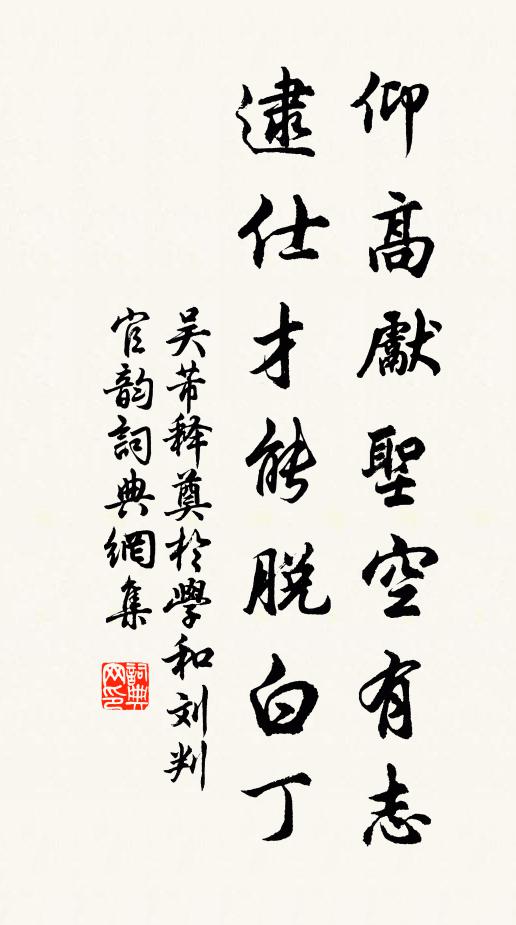 仰高獻聖空有志
逮仕才能脫白丁
吴芾释奠於學和刘判
官韵詞典網集
詞典网印